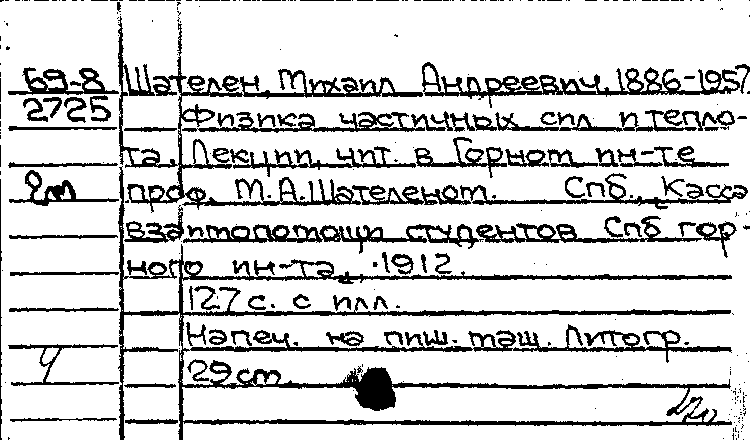 69-8 Шателен, Михаил Андреевич, 1886-1957
2725 Физика частичных сил и тепло-
та. Лекции, чит. в Горном ин-те
проф. М.А.Шателеном. Спб., Касса
взаимопомощи студентов Спб гор-
ного ин-та, 1912.
127 с. с илл.
Напеч. на пиш. маш. Литогр.
29 см